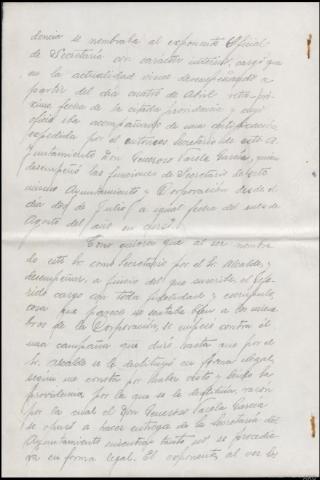 dencia se nombraba al exponente Oficial
de Secretaría con carácter interino, cargo que
en la actualidad viene desempeñando a
partir del día cuatro de Abril
próxima fecha de la citada providencia y cuyo
oficio iba acompañado de una certificación
expedida por el entonces Secretario de este A-
yuntamiento Don Generoso Varela García, quien
desempeñó las funciones de Secretario de este
mismo Ayuntamiento y Corporación desde el
día dos de Julio a igual fecha del mes de
Agosto del año en curso.
Como quiera que al ser nombra-
do este Sr. como Secretario por el Sr. Alcalde, y
desempeñar, a juicio del que suscribe, el refe-
rido cargo con toda fidelidad y escrúpulo,
cosa que parece no sentaba bien a los miem-
bros de la Corporación, se inició contra él
una campaña que duró hasta que por el
Sr. Alcalde se le destituyó en forma ilegal,
según me consta por haber visto y leído la
providencia por la que se le destituía, razón
por la cual el Don Generoso Varela García
se obstó a hacer entrega de la Secretaría del
Ayuntamiento mientras tanto no se procedie-
ra en forma legal. El exponente, al ver lo